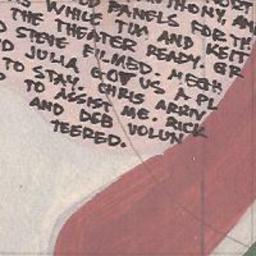 PANELS FOR TH
WHILE TIM AND KEIT
THE THEATER READY. GR
STEVE FILMED. MEGH
JULIA GOT US A PL
TO STAY. CHRIS ARRIV
TO ASSIST ME. RICK
AND DEB VOLUN
TEERED.